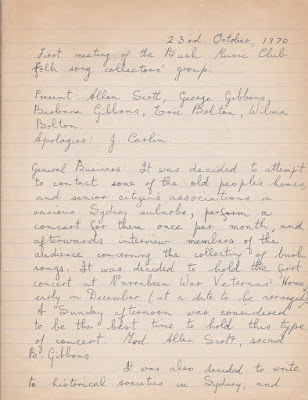 23rd October, 1970
First meeting of the Bush Music Club
folk song collectors' group.
Present: Allen Scott, George Gibbons,
Barbara Gibbons, Eric Bolton, Wilma
Bolton.
Apologies: J. Carlin.
General Business: It was decided to attempt
to contact some of the old people's homes,
and senior citizens associations in
various Sydney suburbs, perform a
concert for them once per month, and
afterwards interview members of the
audience concerning the collecting of bush
songs. It was decided to hold the first
concert at Narrabeen War Veterans' Home,
early in December (at a date to be arranged).
A Sunday afternoon was considered
to be the best time to hold this type
of concert. Mod. Allen Scott, second
B. Gibbons.
It was also decided to write
to historical societies in Sydney, and